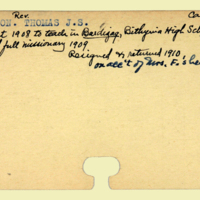 Rev. Ca
ON. THOMAS J.S.
t 1908 to teach in Bardizag, Bithynia High Sch
full missionary 1909.
Resigned & returned 1910
on acc't of Mrs. F.'s he